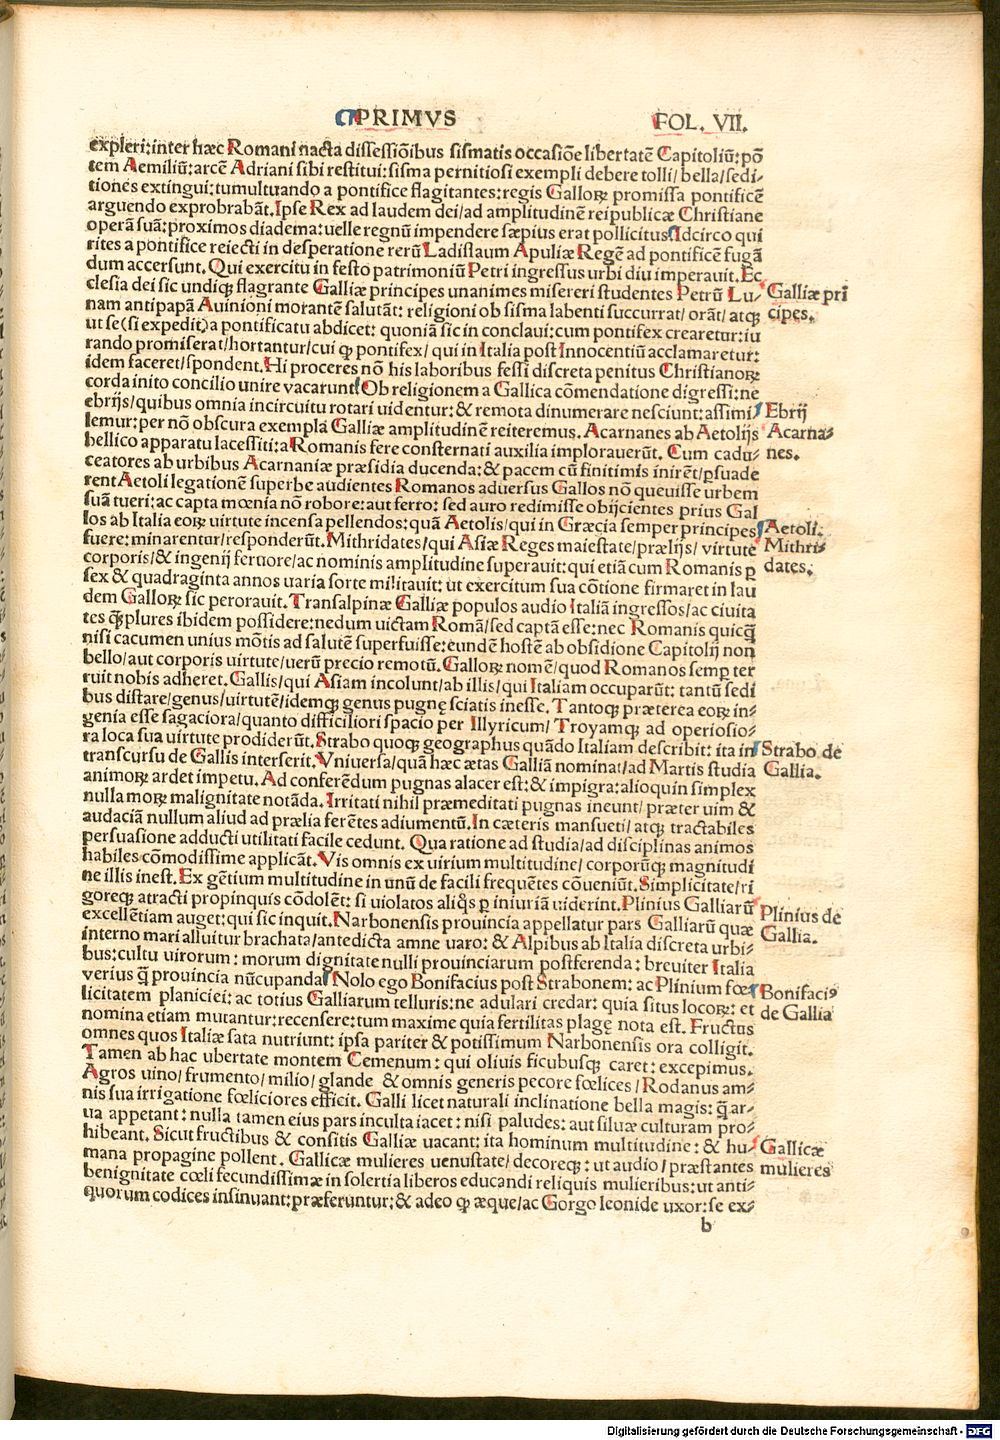 PRIMVS
FOL. VII.
expleri:inter hæc Romani nacta dissessiõibus sismatis occasiõe libertatẽ Capitoliũ:põ
tem Aemiliũ:arcẽ Adriani sibi restitui:sisma pernitiosi exempli debere tolli/bella/sedi-
tiones extingui:tumultuando a pontifice flagitantes:regis Galloꝝ promissa pontificẽ
arguendo exprobrabãt.Ipse Rex ad laudem dei/ad amplitudinẽ reipublicæ Christiane
operã suã:proximos diadema:uelle regnũ impendere sæpius erat pollicitus.Idcirco qui
rites a pontifice reiecti in desperatione rerũ Ladislaum Apuliæ Regẽ ad pontificẽ fugã
dum accersunt.Qui exercitu in festo patrimoniũ Petri ingressus urbi diu imperauit.Ec
clesia dei sic undiqꝫ flagrante Galliæ principes unanimes misereri studentes Petrũ Lu-
nam antipapã Auinioni morantẽ salutãt: religioni ob sisma labenti succurrat/orãt/atqꝫ
ut se(si expedit)a pontificatu abdicet: quoniã sic in conclaui:cum pontifex crearetur:iu
rando promiserat/hortantur/cui ꝙ pontifex/qui in Italia post Innocentiũ acclamaretur:
idem faceret/spondent.Hi proceres nõ his laboribus fessi discreta penitus Christianoꝝ
corda inito concilio unire vacarunt.Ob religionem a Gallica cõmendatione digressi:ne
ebrijs/quibus omnia incircuitu rotari uidentur:& remota dinumerare nesciunt:assimi-
lemur:per nõ obscura exempla Galliæ amplitudinẽ reiteremus.Acarnanes ab Aetolijs
bellico apparatu lacessiti:a Romanis fere consternati auxilia implorauerũt. Cum cadu-
ceatores ab urbibus Acarnaniæ præsidia ducenda:& pacem cũ finitimis inirẽt/ꝑsuade
rent Aetoli legationẽ superbe audientes Romanos aduersus Gallos nõ queuisse urbem
suã tueri:ac capta mœnia nõ robore:aut ferro: sed auro redimisse obijcientes prius Gal
los ab Italia eoꝝ uirtute incensa pellendos:quã Aetolis/qui in Græcia semper principes
fuere:minarentur/responderũt.Mithridates/qui Asiæ Reges maiestate/prælijs/ virtute
corporis/& ingenij feruore/ac nominis amplitudine superauit:qui etiã cum Romanis ꝑ
sex & quadraginta annos uaria sorte militauit: ut exercitum sua cõtione firmaret in lau
dem Galloꝝ sic perorauit.Transalpinæ Galliæ populos audio Italiã ingressos/ac ciuita
tes q̃plures ibidem possidere:nedum uictam Romã/sed captã esse:nec Romanis quicq̃
nisi cacumen unius mõtis ad salutẽ superfuisse:eundẽ hostẽ ab obsidione Capitolij non
bello/aut corporis uirtute/uerũ precio remotũ.Galloꝝ nomẽ/quod Romanos semꝑ ter
ruit nobis adheret.Gallis/qui Asiam incolunt/ab illis/qui Italiam occuparũt: tantũ sedi
bus distare/genus/uirtutẽ/idemqꝫ genus pugnę sciatis inesse.Tantoqꝫ præterea eoꝝ in-
genia esse sagaciora/quanto difficiliori spacio per Illyricum/Troyamqꝫ ad operiosio-
ra loca sua uirtute prodiderũt.Strabo quoqꝫ geographus quãdo Italiam describit: ita in
transcursu de Gallis interserit.Vniuersa/quã hæc ætas Galliã nominat/ad Martis studia
animoꝝ ardet impetu.Ad conferẽdum pugnas alacer est:& impigra:alioquin simplex
nulla moꝝ malignitate notãda.Irritati nihil præmeditati pugnas ineunt/præter uim &
audaciã nullum aliud ad prælia ferẽtes adiumentũ.In cæteris mansueti/atqꝫ tractabiles
persuasione adducti utilitati facile cedunt. Qua ratione ad studia/ad disciplinas animos
habiles cõmodissime applicãt.Vis omnis ex uirium multitudine/corporũqꝫ magnitudi
ne illis inest.Ex gẽtium multitudine in unũ de facili frequẽtes cõueniũt.Simplicitate/ri
goreqꝫ atracti propinquis cõdolẽt: si uiolatos aliq̃s ꝑ iniuriã uiderint.Plinius Galliarũ
excellẽtiam auget:qui sic inquit.Narbonensis prouincia appellatur pars Galliarũ quæ
interno mari alluitur brachata/antedicta amne uaro: & Alpibus ab Italia discreta urbi-
bus:cultu uirorum: morum dignitate nulli prouinciarum postferenda: breuiter Italia
verius q̃ prouincia nũcupanda.Nolo ego Bonifacius post Strabonem: ac Plinium fœ-
licitatem planiciei: ac totius Galliarum telluris:ne adulari credar: quia situs locoꝝ: et
nomina etiam mutantur:recensere:tum maxime quia fertilitas plagę nota est. Fructus
omnes quos Italiæ sata nutriunt: ipsa pariter & potissimum Narbonensis ora colligit.
Tamen ab hac ubertate montem Cemenum: qui oliuis ficubusqꝫ caret: excepimus.
Agros uino/frumento/milio/glande & omnis generis pecore fœlices/Rodanus am-
nis sua irrigatione fœliciores efficit. Galli licet naturali inclinatione bella magis: q̃ ar-
ua appetant: nulla tamen eius pars inculta iacet: nisi paludes: aut siluæ culturam pro-
hibeant. Sicut fructibus & consitis Galliæ uacant: ita hominum multitudine: & hu-
mana propagine pollent. Gallicæ mulieres uenustate/decoreqꝫ: ut audio/præstantes
benignitate cœli fecundissimæ in solertia liberos educandi reliquis mulieribus:ut anti-
quorum codices insinuant:præferuntur:& adeo ꝙ æque/ac Gorgo leonide uxor:se ex-
b
Galliæ pri
cipes.
Ebrij
Acarna-
nes.
Aetoli.
Mithri-
dates.
Strabo de
Gallia.
Plinius de
Gallia.
Bonifaciꝰ
de Gallia
Gallicæ
mulieres
Digitalisierung gefördert durch die Deutsche Forschungsgemeinschaft - DFG